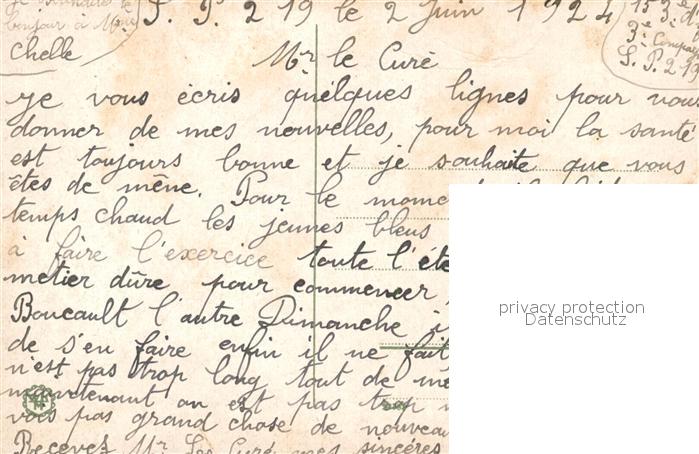 bonjour à Mme
chelle
S. P. 219 le 2 Juin 1924
153e
3e Compa
S. P. 219
Mr le Curé
Je vous écris quélques lignes pour vous
donner de mes nouvelles, pour moi la santé
est toujours bonne et je souhaite que vous
êtes de mêne. Pour le mome
temps chaud les jeunes bleus
à faire l'exercice toute l'éte
metier dûre pour commencer,
Boucault l'autre Dimanche
de s'en faire enfin il ne fait
n'est pas trop long tout de mê
maintenant on est pas trop
vois pas grand chose de nouveau
Recevez Mr Le Curé mes sincéres
privacy protection
Datenschutz